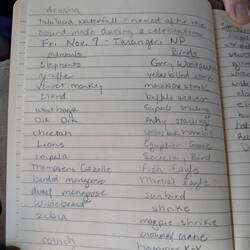 Arusha
Tululusia waterfall - named after the
sound made during a celebration
Fri. Nov. 7 - Tarangeri NP
Mammals Birds
Elephants Grey Woodpecker
giraffe yellow billed stork
vervet monkey marabou stork
Eland buffalo weaver
warthogs Superb starling
Dik Dik Ashy starling
cheetah yellow hornbill
Lions Egyptian Goose
impala Secretary Bird
Thompsons Gazelle Fish Eagle
banded mongoose Martial Eagle
dwarf mongoose sunbird
Wildebeast shrike
zebra magpie shrike
crowned crane
ostrich hammerkok